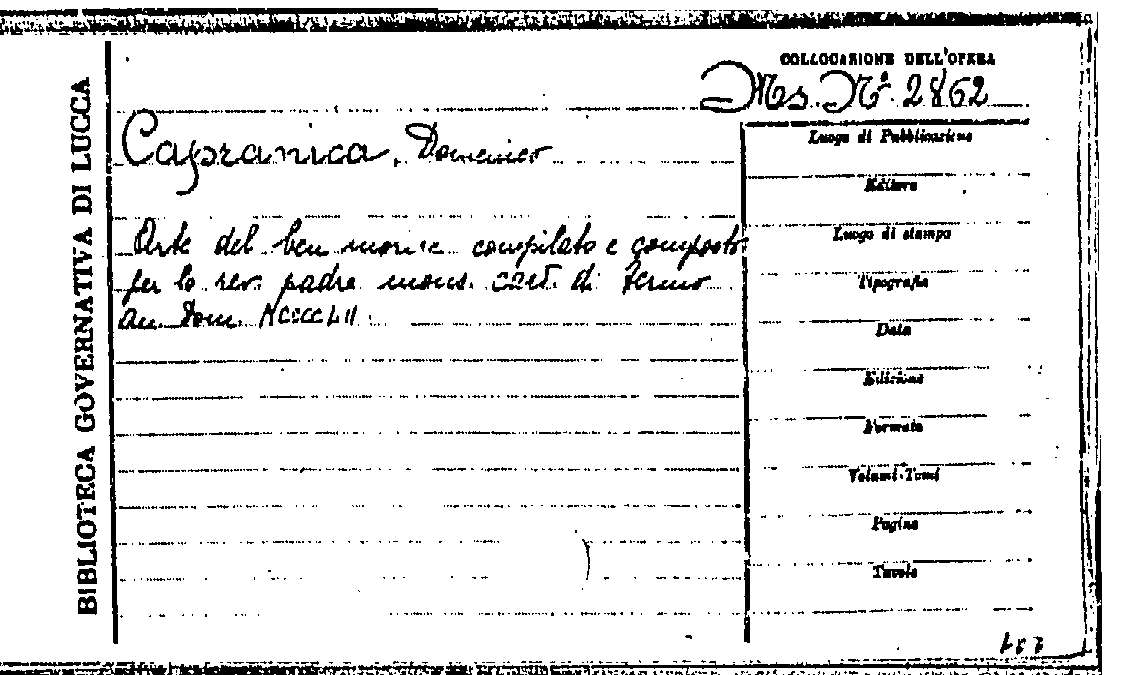 BIBLIOTECA GOVERNATIVA DI LUCCA
COLLOCAZIONE DELL'OPERA
Ms. Nº 2862
Capranica, Domenico
Arte del ben morire compilato e composto
per lo rev. padre mons. card. di Fermo
an. Dom. MCCCCLII.
Luogo di Pubblicazione
Editore
Luogo di stampa
Tipografia
Data
Edizione
Formato
Volumi-Tomi
Pagine
Tavole